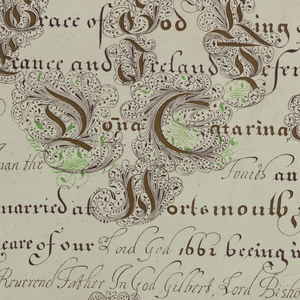 Grace of God King
France and Ireland Defen
Dona Catarina
man the Fourth an
married at Portsmouth
yeare of our Lord God 1661 beeing
Reuerend Father In God Gilbert, Lord Bisho